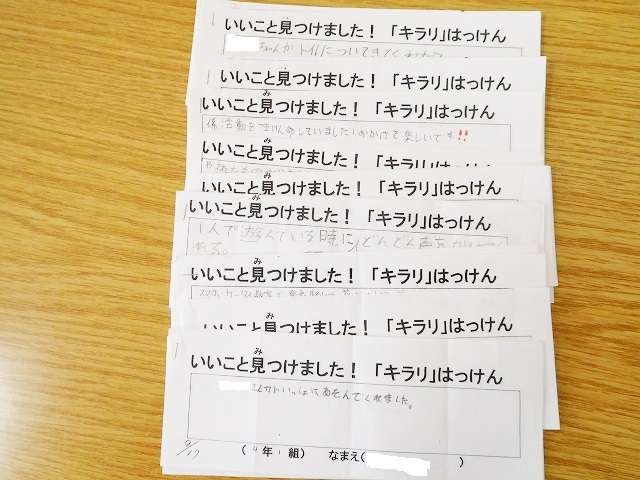 いいこと見つけました！「キラリ」はっけん
ちゃんがトイレについてきてくれた
いいこと見つけました！「キラリ」はっけん
み
いいこと見つけました！「キラリ」はっけん
係活動を一生けん命していました！おかげで楽しいです!!
いいこと見つけました！「キラリ」はっけん
み
いいこと見つけました！「キラリ」はっけん
み
いいこと見つけました！「キラリ」はっけん
1人で遊んでいる時に、どんどん声をかけてく
れる。
み
いいこと見つけました！「キラリ」はっけん
み
いいこと見つけました！「キラリ」はっけん
み
いいこと見つけました！「キラリ」はっけん
さんがいっしょにあそんでくれました。
9/17
(4年1組) なまえ( )